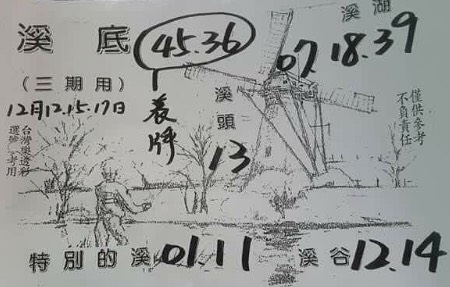 溪底 45.36
溪湖
07.18.39
(三期用)
12月12.15.17日
表牌
溪頭
13
僅供參考
不負責任
特別的溪 01.11
溪谷 12.14